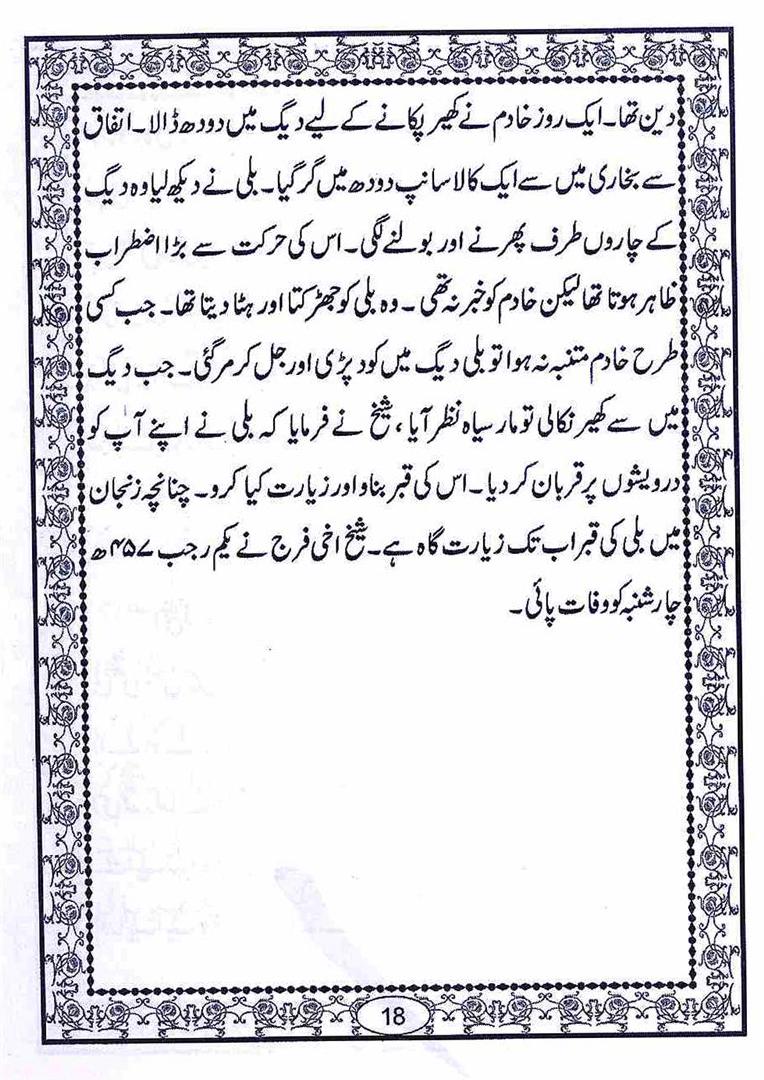 دین تھا۔ ایک روز خادم نے کھیر پکانے کے لیے دیگ میں دودھ ڈالا۔ اتفاق
سے بخاری میں سے ایک کالا سانپ دودھ میں گر گیا۔ بلی نے دیکھ لیا وہ دیگ
کے چاروں طرف پھرنے اور بولنے لگی۔ اس کی حرکت سے بڑا اضطراب
ظاہر ہوتا تھا لیکن خادم کو خبر نہ تھی۔ وہ بلی کو جھڑکتا اور ہٹا دیتا تھا۔ جب کسی
طرح خادم متنبہ نہ ہوا تو بلی دیگ میں کود پڑی اور جل کر مر گئی۔ جب دیگ
میں سے کھیر نکالی تو مار سیاہ نظر آیا، شیخ نے فرمایا کہ بلی نے اپنے آپ کو
درویشوں پر قربان کر دیا۔ اس کی قبر بناو اور زیارت کیا کرو۔ چنانچہ زنجان
میں بلی کی قبر اب تک زیارت گاہ ہے۔ شیخ اخی فرج نے یکم رجب ۴۵۷ھ
چار شنبہ کو وفات پائی۔
18